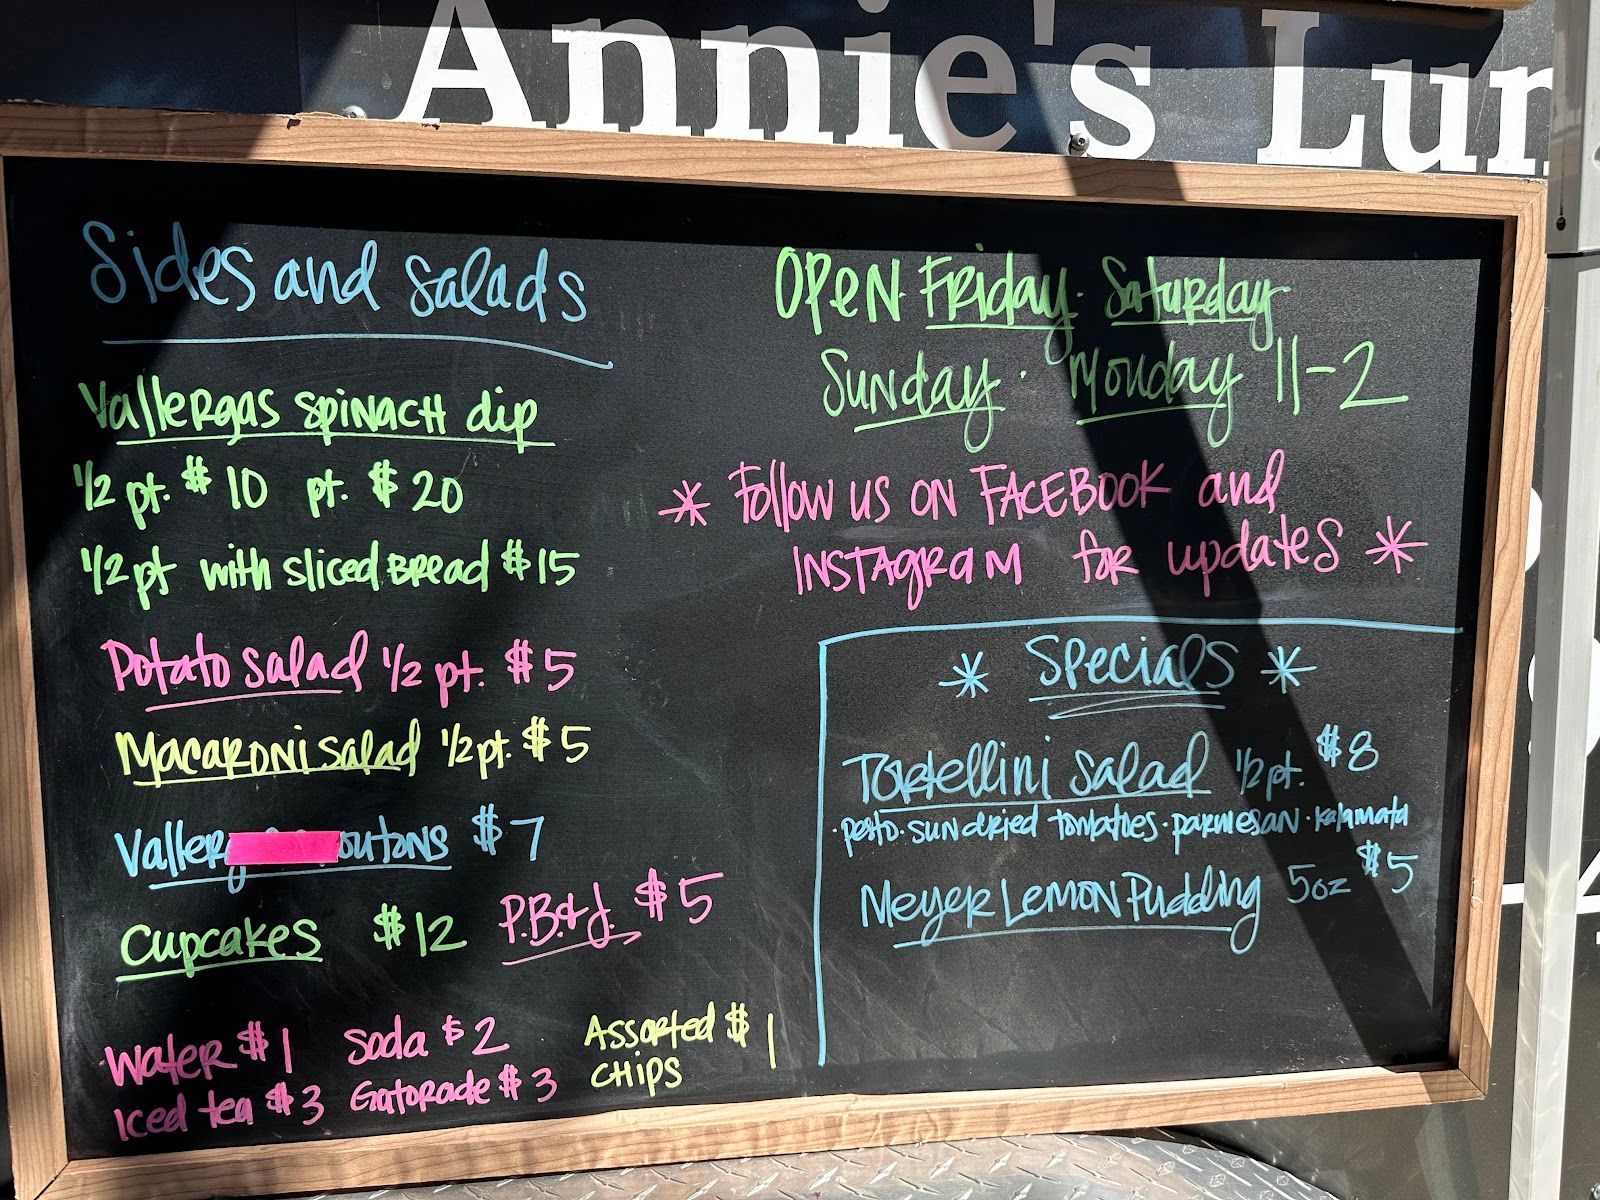 Annie's Lun
Sides and salads
Vallergas spinach dip
1/2 pt. $10 pt. $20
1/2 pt with sliced Bread $15
Potato salad 1/2 pt. $5
Macaroni salad 1/2 pt. $5
$7
Cupcakes $12 P.B.&J. $5
Water $1 Soda $2
Iced tea $3 Gatorade $3
Assorted $1
CHIPS
OPEN Friday · Saturday
Sunday · Monday 11-2
* Follow us on FACEBOOK and
INSTAGRAM for updates *
* Specials *
Tortellini salad 1/2 pt. $8
· pesto · sundried tomatoes · parmesan · kalamata
Meyer Lemon Pudding 5oz $5